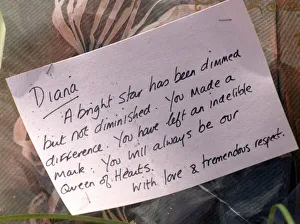 Diana
A bright star has been dimmed
but not diminished. You made a
difference. You have left an indelible
mark. You will always be our
Queen of Hearts.
With love & tremendous respect.